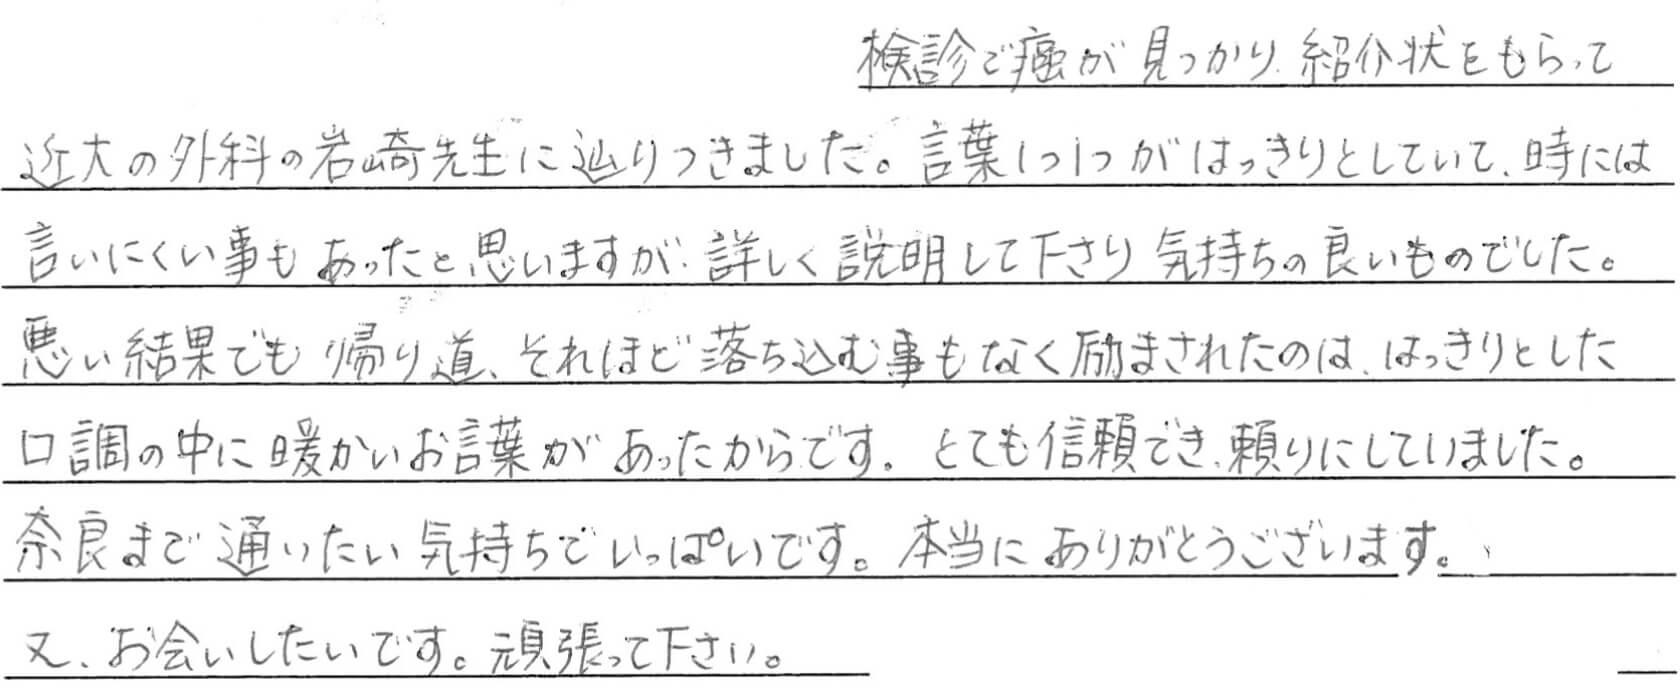 検診で癌が見つかり、紹介状をもらって
近大の外科の岩崎先生に辿りつきました。言葉1つ1つがはっきりとしていて、時には
言いにくい事もあったと思いますが、詳しく説明して下さり気持ちの良いものでした。
悪い結果でも帰り道、それほど落ち込む事もなく励まされたのは、はっきりとした
口調の中に暖かいお言葉があったからです。とても信頼でき、頼りにしていました。
奈良まで通いたい気持ちでいっぱいです。本当にありがとうございます。
又、お会いしたいです。頑張って下さい。